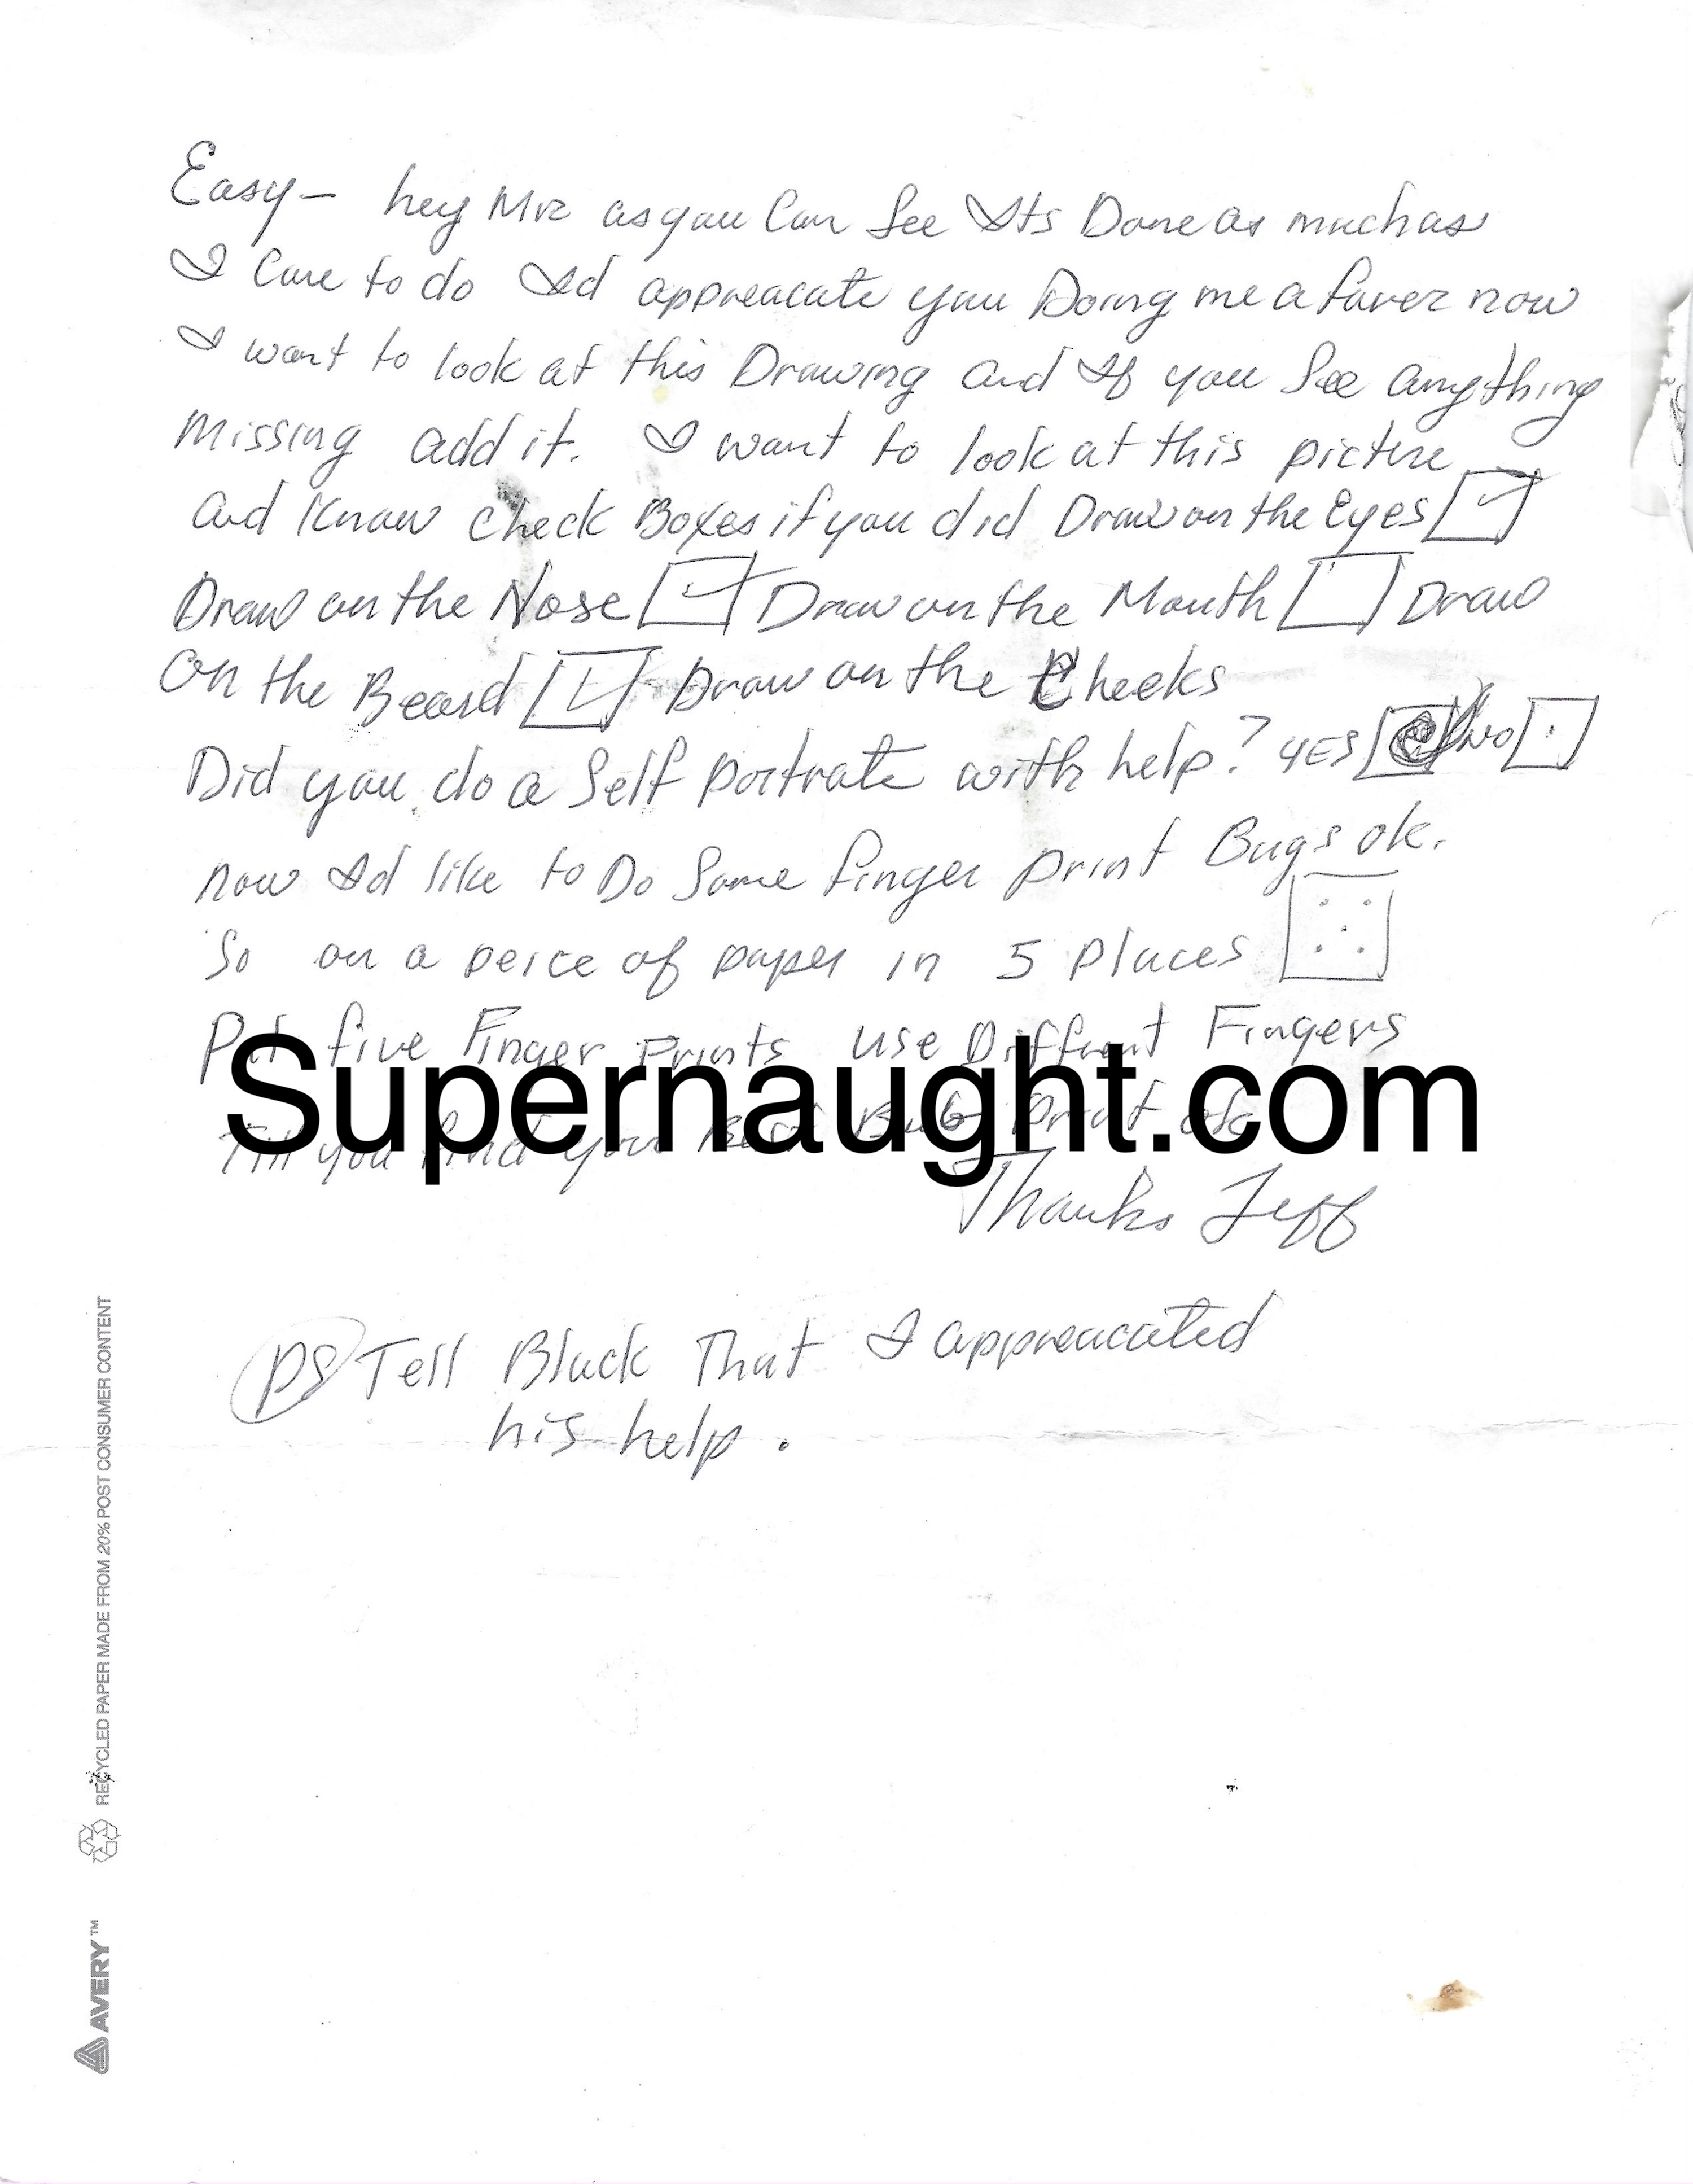 Easy - hey Mr as you Can See Its Done as much as
I Care to do Id appreacate you Doing me a faver now
I want to look at this Drawing and If you See anything
missing add it. I want to look at this picture
and Know check Boxes if you did Draw on the Eyes
Draw on the Nose Draw on the Mouth Draw
on the Beard Draw on the Cheeks
Did you do a Self portrate with help? YES NO
now Id like to Do Some finger print Bugs ok.
So on a peice of paper in 5 places
Put five Finger Prints use Diffrent Fingers
Supernaught.com
Till you find your Best print ok
Thanks Jeff
PS Tell Black That I appreacated
his help.
RECYCLED PAPER MADE FROM 20% POST CONSUMER CONTENT
AVERY™